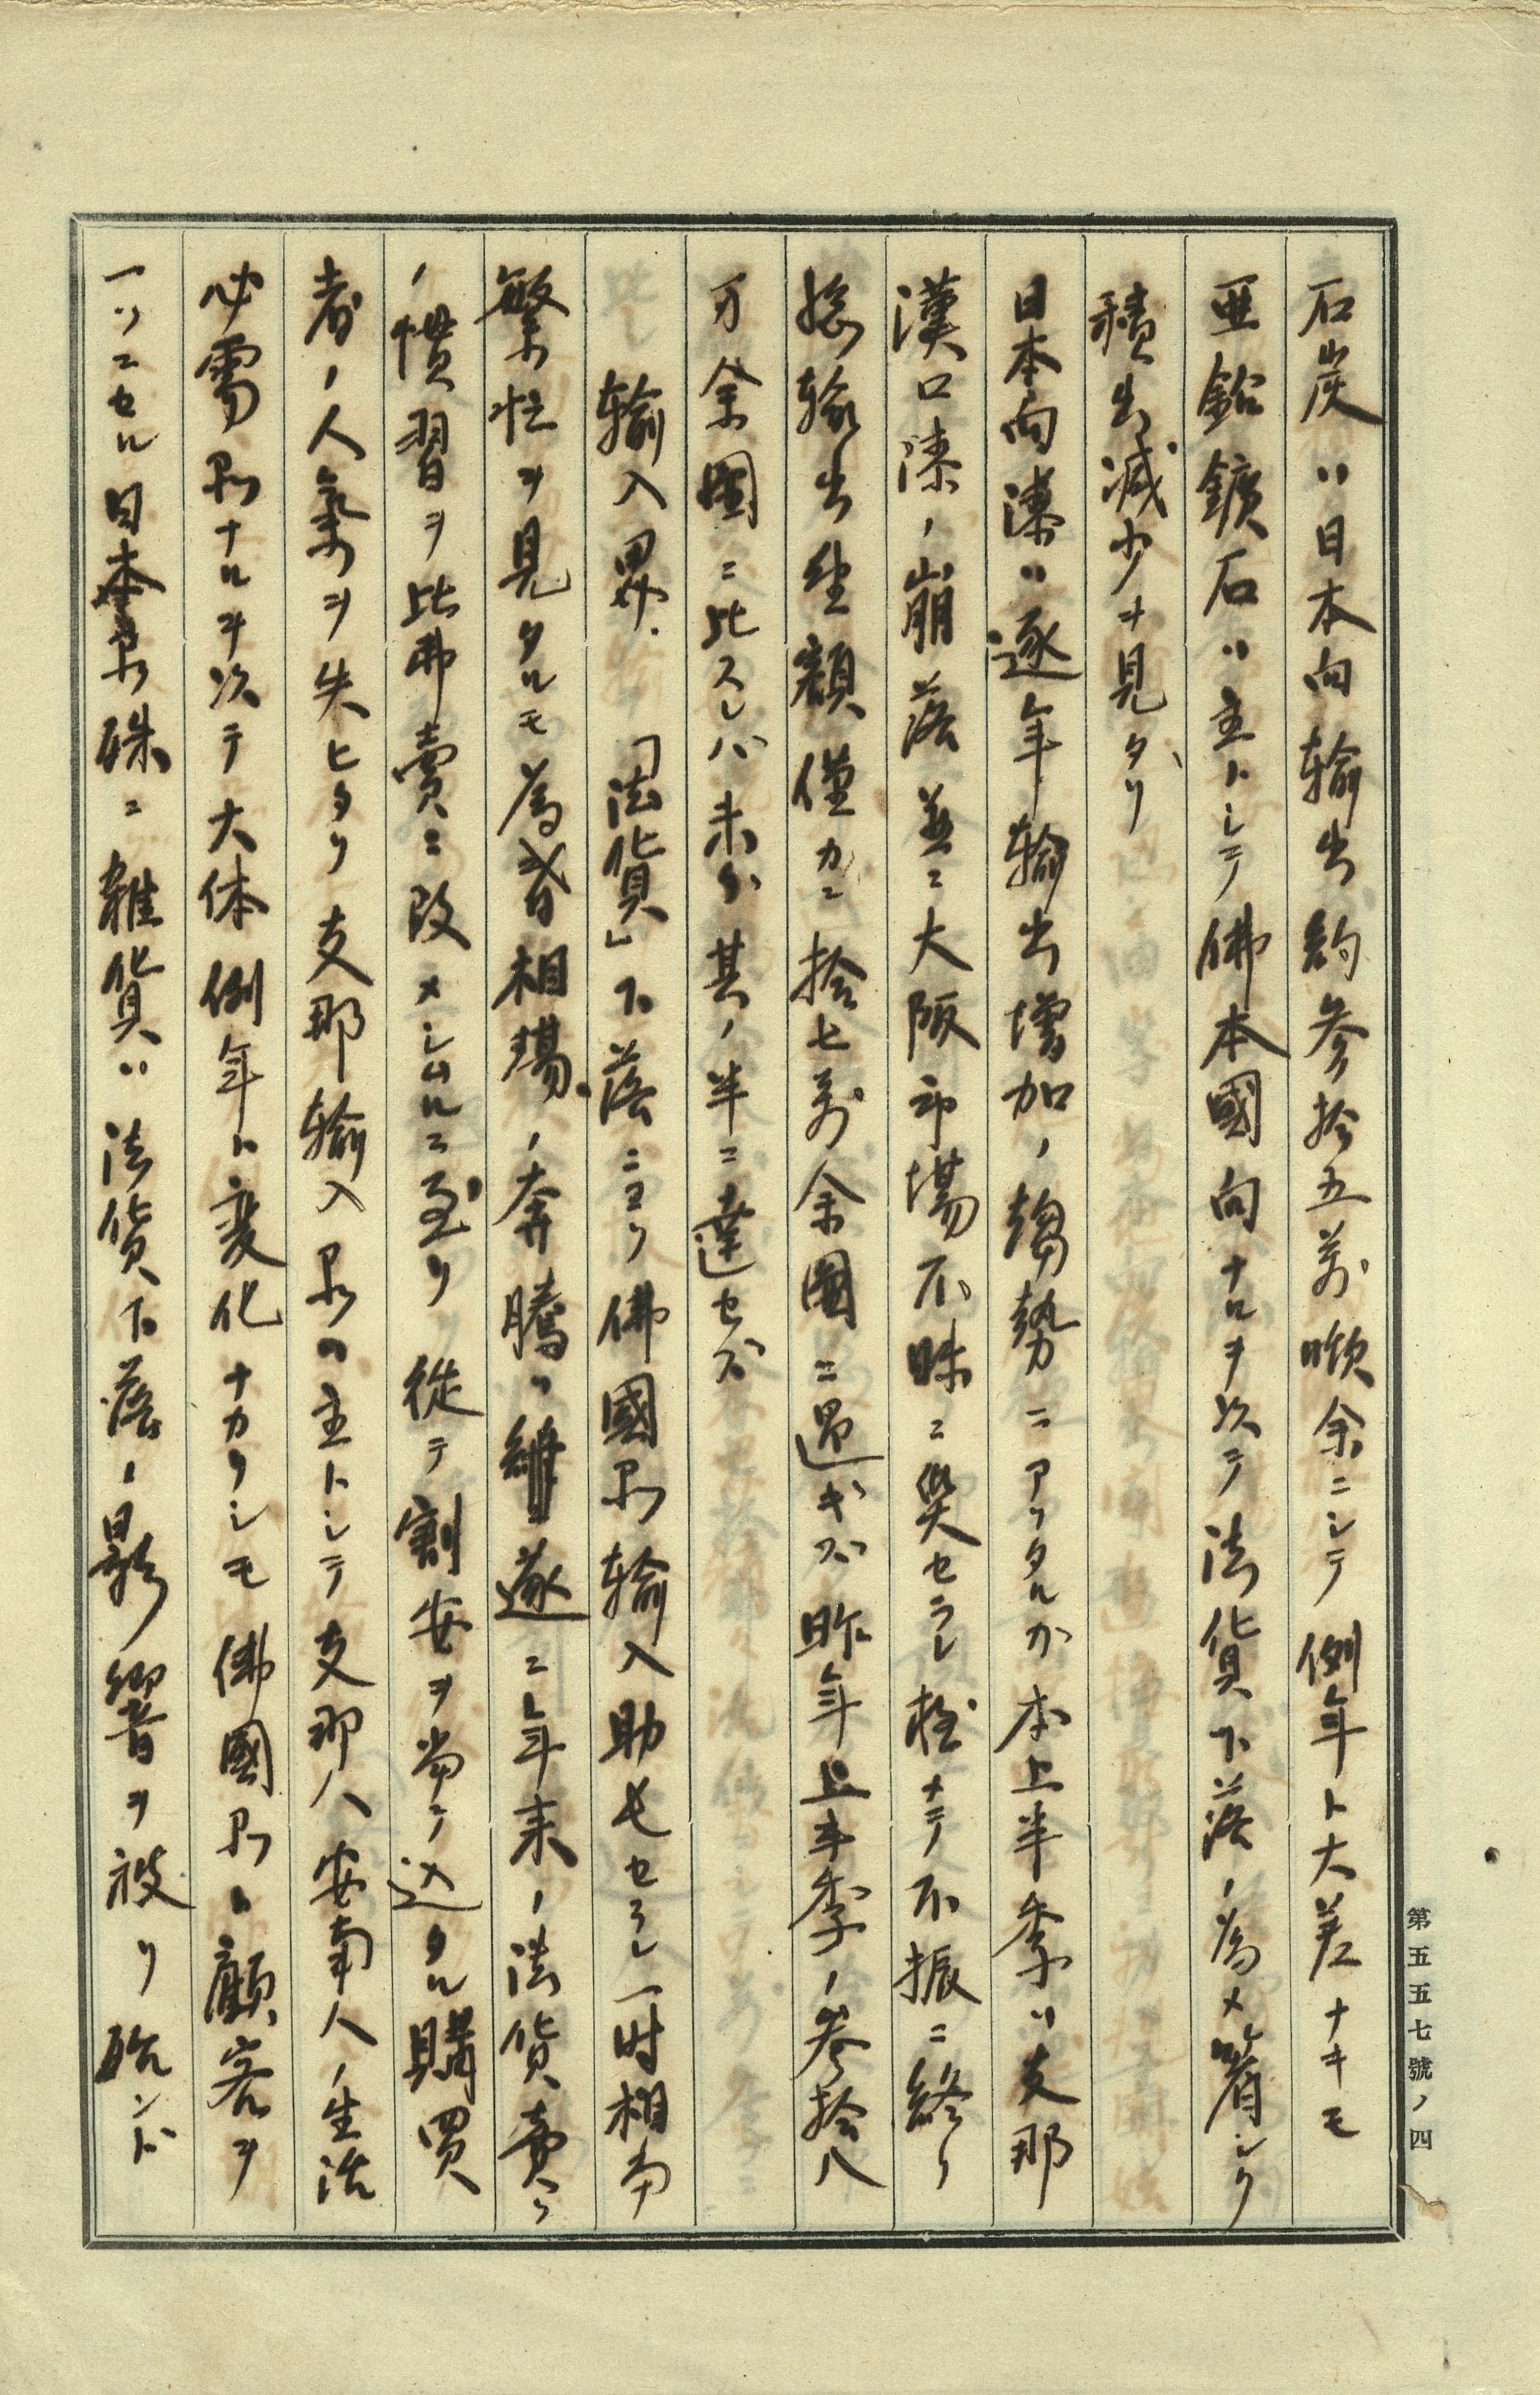 石炭ハ日本向輸出約参拾五萬噸余ニシテ例年ト大差ナキモ
亜鉛鑛石ハ主トシテ佛本國向ナルヲ以テ法貨下落ノ為メ著シク
積出減少ヲ見タリ
日本向漆ハ逐年輸出増加ノ趨勢ニアリタルカ本上半季ハ支那
漢口漆ノ崩落並ニ大阪市場不味ニ災セラレ極メテ不振ニ終リ
総輸出生額僅カニ拾七萬余圓ニ過ギズ昨年上半季ノ参拾八
万余圓ニ比スレバ未ダ其ノ半ニ達セズ
輸入界．「法貨」下落ニヨリ佛國品輸入助長セラレ一時相当
繁忙ヲ見タルモ為替相場ノ奔騰ハ遂ニ年末ノ法貨賣リ
ノ慣習ヲ比弗賣ニ改メシムルニ至リ従テ割安ヲ当テ込タル購買
者ノ人氣ヲ失ヒタリ支那輸入品ハ主トシテ支那人安南人ノ生活
必需品ナルヲ以テ大体例年ト変化ナカリシモ佛國品ト顧客ヲ
一ツニセル日本品殊ニ雑貨ハ法貨下落ノ影響ヲ被リ殆ンド
第五五七號ノ四